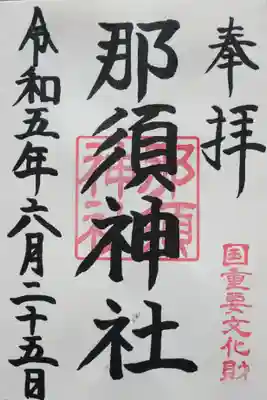 奉拝
国重要文化財
那須神社
那須神社
令和五年六月二十五日